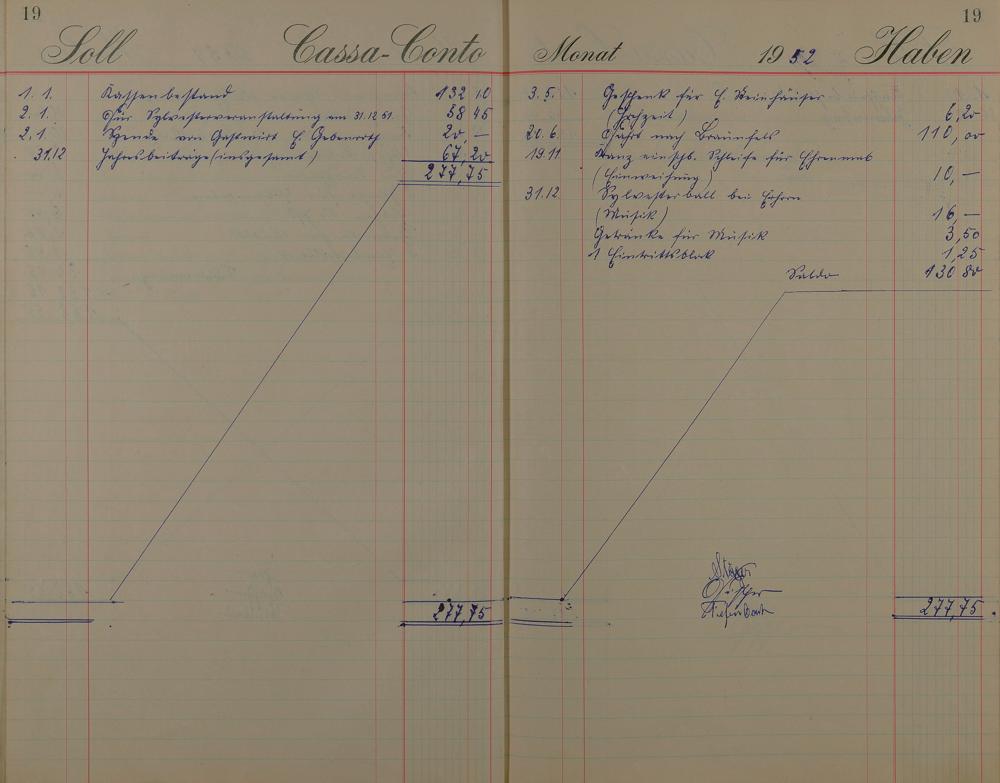 19
Soll Cassa-Conto
1. 1. Kassenbestand 132 10
2. 1. Für Sylvesterveranstaltung am 31.12.51. 58 45
2. 1. Spende von Gastwirt H. Gebenroth 20,—
31.12 Jahresbeiträge (insgesamt) 67,20
277,75
277,75
19
Monat 1952 Haben
3.5. Geschenk für H. Steinhäuser
(Hochzeit) 6,20
20.6. Fahrt nach Braunfels 110,00
19.11 Kranz einschl. Schleife für Ehrenmal
(Einweihung) 10,—
31.12. Sylvesterball bei
(Musik) 16,—
Getränke für Musik 3,50
1 Eintrittsblock 1,25
Saldo 130 80
277,75